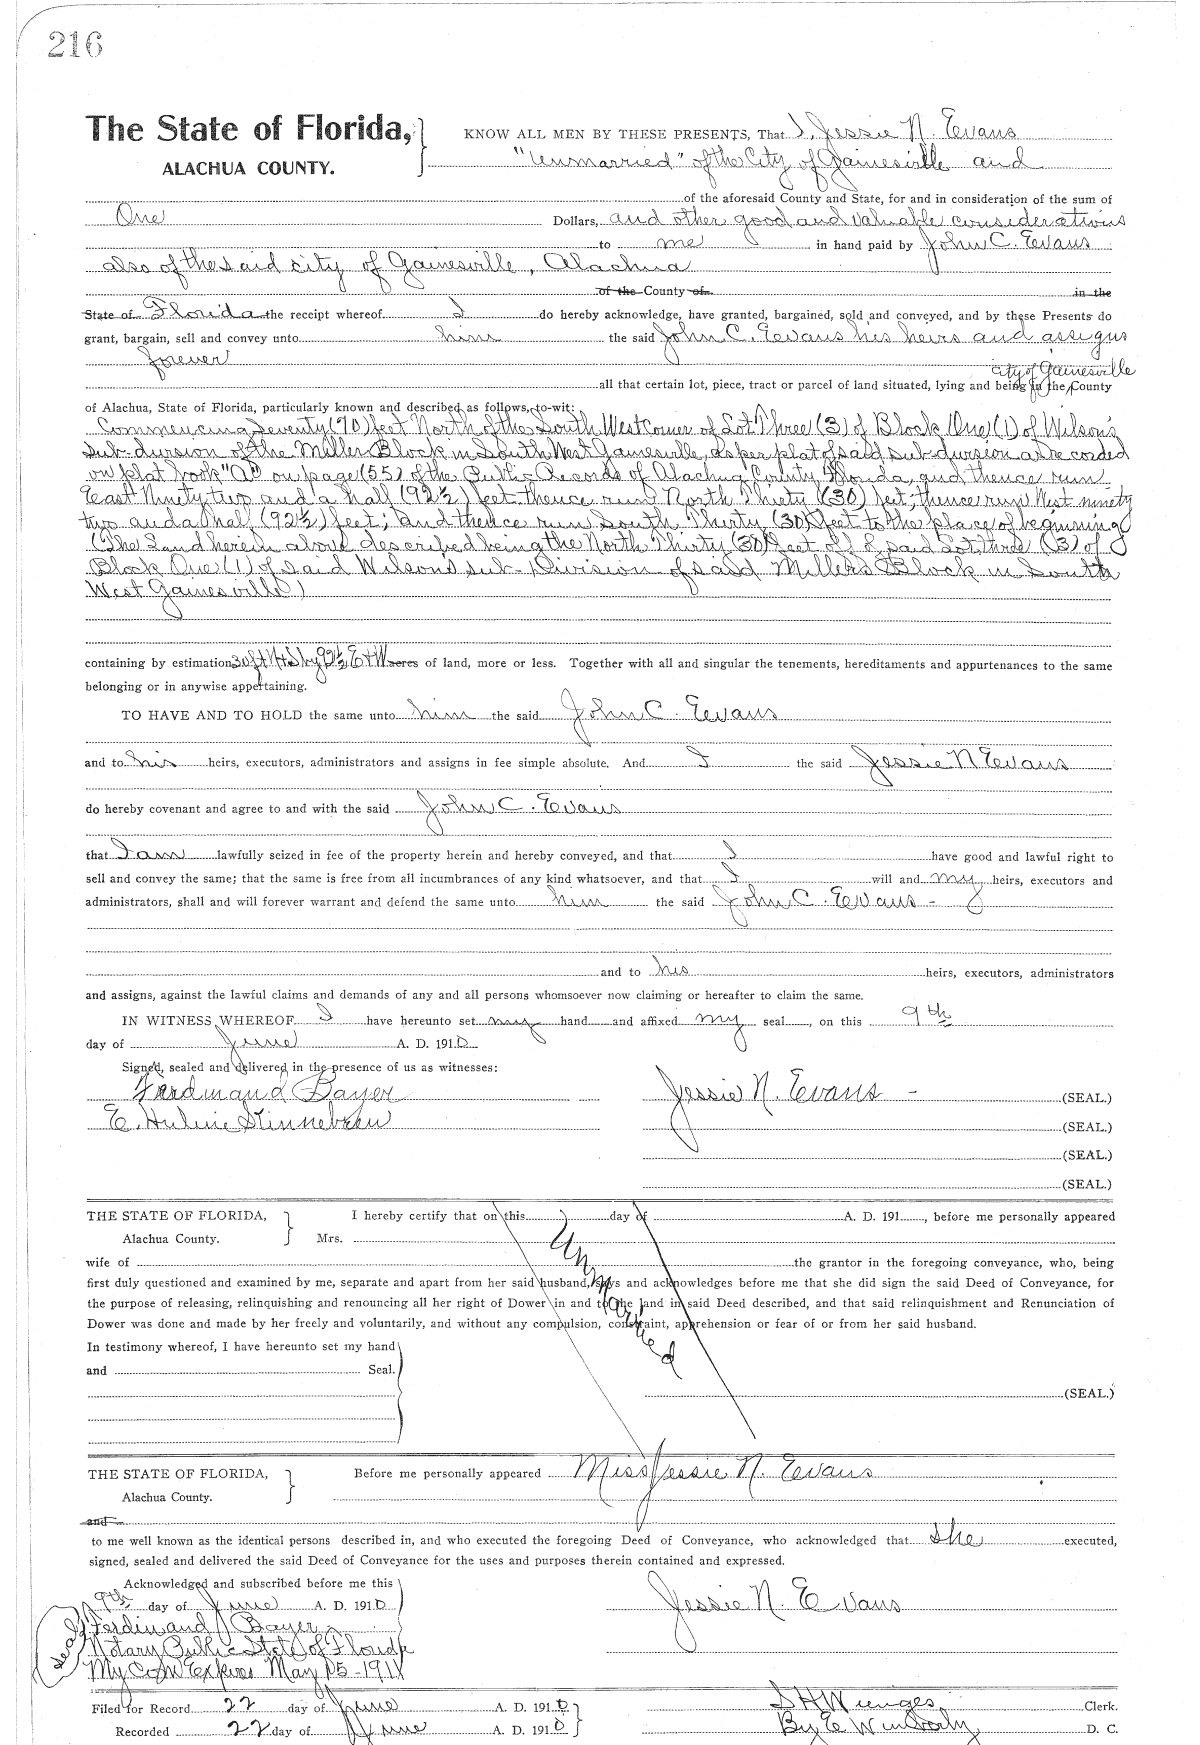 216
The State of Florida, KNOW ALL MEN BY THESE PRESENTS, That I, Jessie N. Evans
ALACHUA COUNTY. "Unmarried" of the City of Gainesville and
of the aforesaid County and State, for and in consideration of the sum of
One Dollars, and other good and valuable considerations
to me in hand paid by John C. Evans
also of the said city of Gainesville, Alachua
of the County of in the
State of Florida the receipt whereof I do hereby acknowledge, have granted, bargained, sold and conveyed, and by these Presents do
grant, bargain, sell and convey unto him the said John C. Evans his heirs and assigns
forever
city of Gainesville
all that certain lot, piece, tract or parcel of land situated, lying and being in the County
of Alachua, State of Florida, particularly known and described as follows, to-wit:
Commencing Seventy (70) feet North of the South West Corner of Lot Three (3) of Block One (1) of Wilson's
Sub-division of the Miller Block in South West Gainesville, as per plat of said sub-division as recorded
on plat book "A" on page (55) of the Public Records of Alachua County Florida, and thence run
East Ninety two and a half (92½) feet thence run North Thirty (30) feet, thence run West ninety
two and a half (92½) feet; and thence run South Thirty (30) feet to the place of beginning
(The Land herein above described being the North Thirty (30) feet off of said Lot Three (3) of
Block One (1) of said Wilson's sub-Division of said Millers Block in South
West Gainesville)
containing by estimation 30 ft N+S by 92½ E+W acres of land, more or less. Together with all and singular the tenements, hereditaments and appurtenances to the same
belonging or in anywise appertaining.
TO HAVE AND TO HOLD the same unto him the said John C. Evans
and to his heirs, executors, administrators and assigns in fee simple absolute. And I the said Jessie N Evans
do hereby covenant and agree to and with the said John C. Evans
that I am lawfully seized in fee of the property herein and hereby conveyed, and that I have good and lawful right to
sell and convey the same; that the same is free from all incumbrances of any kind whatsoever, and that I will and my heirs, executors and
administrators, shall and will forever warrant and defend the same unto him the said John C. Evans -
and to his heirs, executors, administrators
and assigns, against the lawful claims and demands of any and all persons whomsoever now claiming or hereafter to claim the same.
IN WITNESS WHEREOF I have hereunto set my hand and affixed my seal, on this 9th
day of June A. D. 1910
Signed, sealed and delivered in the presence of us as witnesses:
Ferdinand Bayer Jessie N. Evans - (SEAL.)
E. Hulme Stinnebren (SEAL.)
(SEAL.)
(SEAL.)
THE STATE OF FLORIDA, I hereby certify that on this day of A. D. 191, before me personally appeared
Alachua County. Mrs.
wife of the grantor in the foregoing conveyance, who, being
first duly questioned and examined by me, separate and apart from her said husband, says and acknowledges before me that she did sign the said Deed of Conveyance, for
the purpose of releasing, relinquishing and renouncing all her right of Dower in and to the land in said Deed described, and that said relinquishment and Renunciation of
Dower was done and made by her freely and voluntarily, and without any compulsion, constraint, apprehension or fear of or from her said husband.
Unmarried
In testimony whereof, I have hereunto set my hand
and Seal.
(SEAL.)
THE STATE OF FLORIDA, Before me personally appeared Miss Jessie N. Evans
Alachua County.
and
to me well known as the identical persons described in, and who executed the foregoing Deed of Conveyance, who acknowledged that she executed,
signed, sealed and delivered the said Deed of Conveyance for the uses and purposes therein contained and expressed.
Acknowledged and subscribed before me this
9th day of June A. D. 1910 Jessie N. Evans
seal Ferdinand Bayer
Notary Public State of Florida
My Com Expires May 15-1911
Filed for Record 22 day of June A. D. 1910 S H Wienges Clerk.
Recorded 22 day of June A. D. 1910 By E Wimberly D. C.